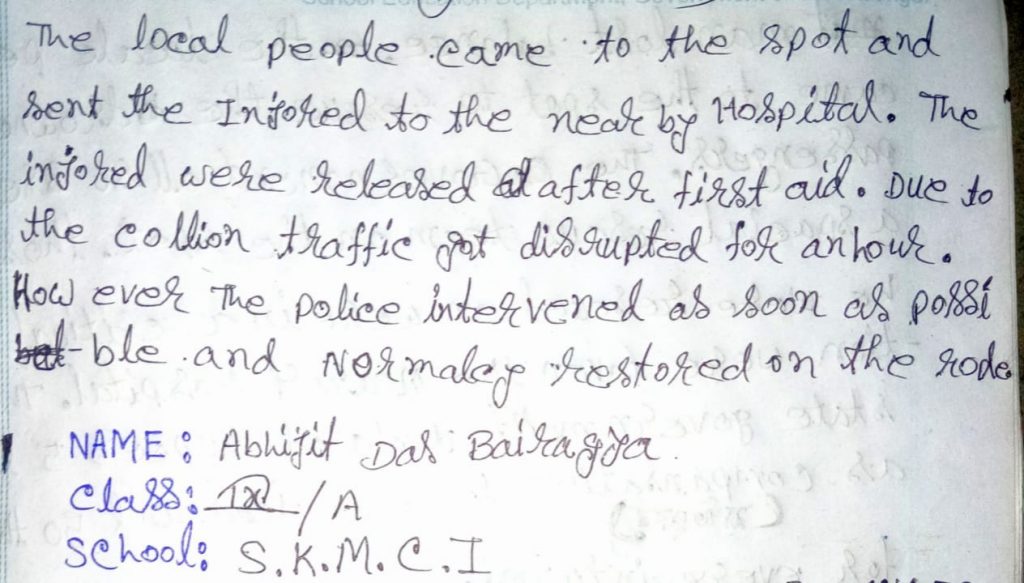 The local people came to the spot and
sent the Injored to the near by Hospital. The
injored were released after first aid. Due to
the collion traffic got disrupted for an hour.
How ever The police intervened as soon as possi
-ble and Normalcy restored on the rode
NAME: Abhijit Das Bairagya
Class: IX / A
School: S.K.M.C.I